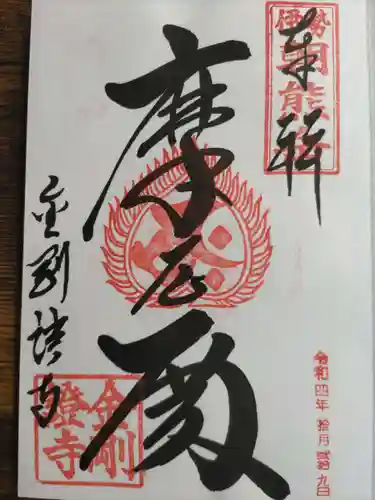 奉拝
伊勢
朝熊岳
摩尼殿
金剛證寺
金剛
證寺
令和四年 拾月 弐拾九日